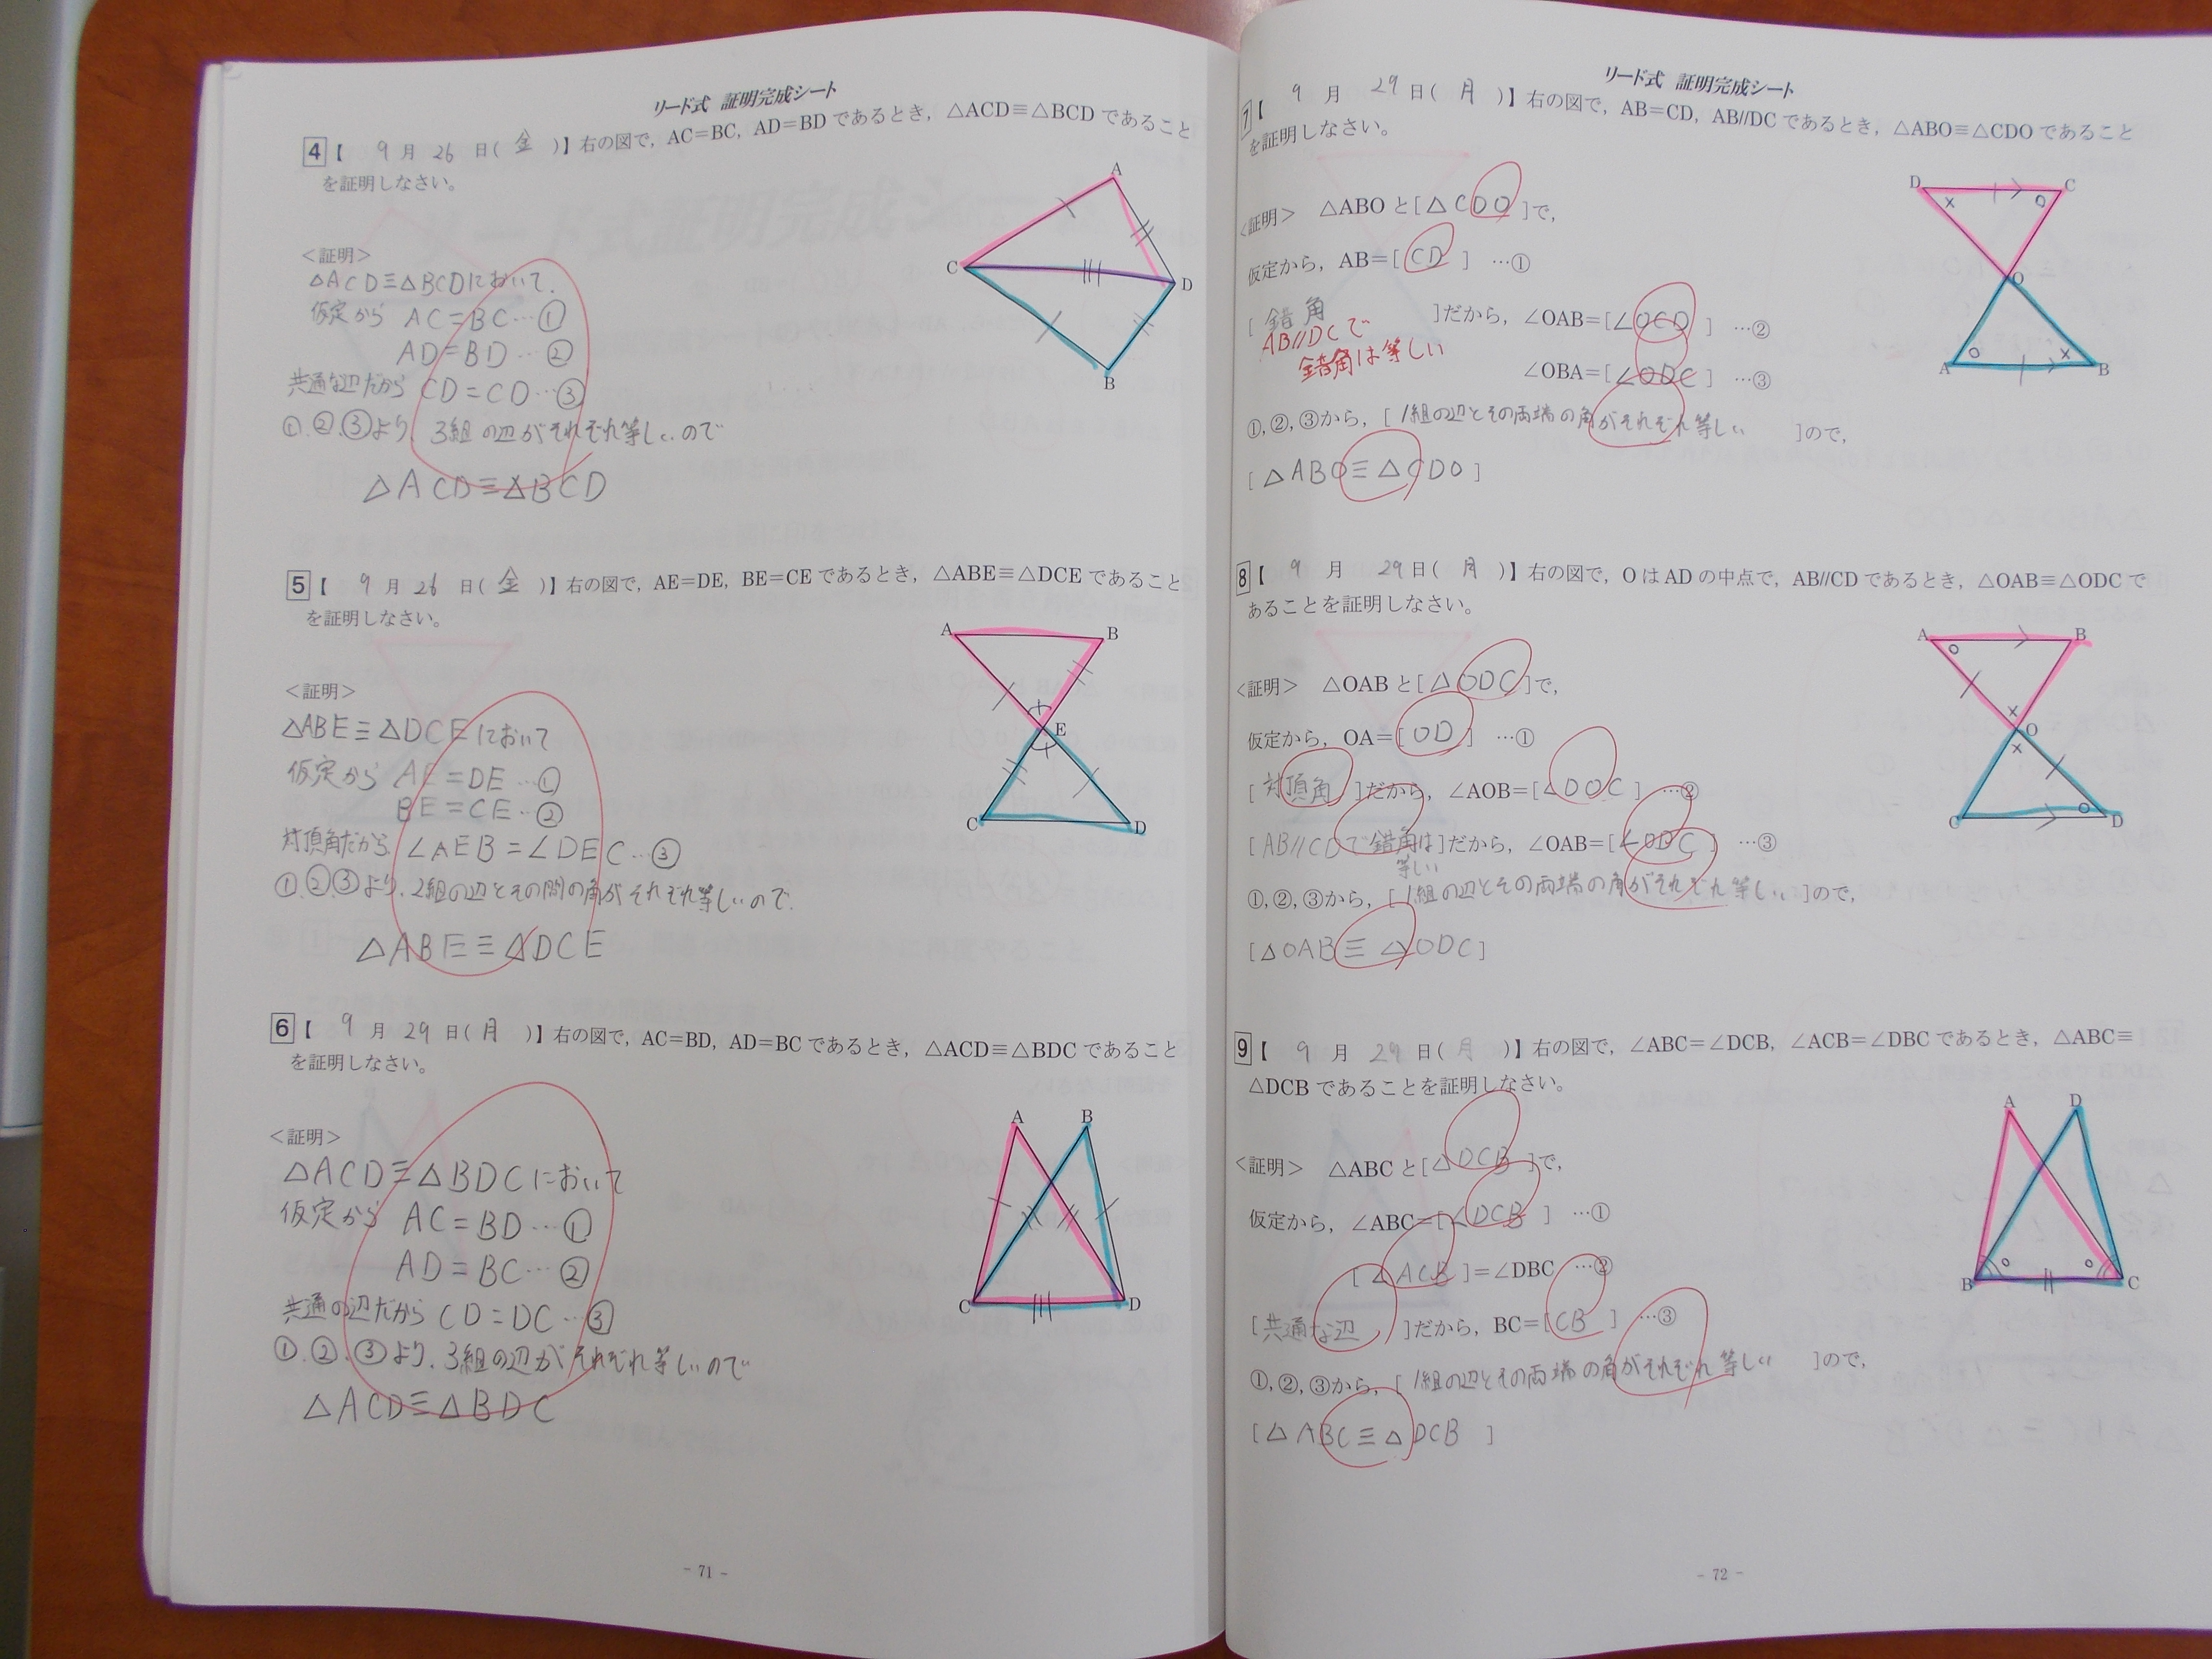 リード式 証明完成シート
4【 9月 26日(金)】右の図で，AC＝BC，AD＝BD であるとき，△ACD≡△BCD であること
を証明しなさい。
＜証明＞
△ACD≡△BCDにおいて.
仮定から AC=BC…①
AD=BD…②
共通な辺だから CD=CD…③
①.②.③より. 3組の辺がそれぞれ等しいので
△ACD≡△BCD
A
C
D
B
5【 9月 26日(金)】右の図で，AE＝DE，BE＝CE であるとき，△ABE≡△DCE であること
を証明しなさい。
＜証明＞
△ABE≡△DCEにおいて
仮定から AE=DE…①
BE=CE…②
対頂角だから ∠AEB=∠DEC…③
①.②.③より. 2組の辺とその間の角がそれぞれ等しいので.
△ABE≡△DCE
A B
E
C D
6【 9月 29日(月)】右の図で，AC＝BD，AD＝BC であるとき，△ACD≡△BDC であること
を証明しなさい。
＜証明＞
△ACD≡△BDCにおいて
仮定から AC=BD…①
AD=BC…②
共通の辺だから CD=DC…③
①.②.③より. 3組の辺がそれぞれ等しいので
△ACD≡△BDC
A B
C D
- 71 -
リード式 証明完成シート
7【 9月 29日(月)】右の図で，AB＝CD，AB//DC であるとき，△ABO≡△CDO であること
を証明しなさい。
＜証明＞ △ABO と[△CDO]で，
仮定から，AB＝[CD] …①
[錯角 ]だから，∠OAB＝[∠OCD] …②
AB//DCで
錯角は等しい
∠OBA＝[∠ODC] …③
①，②，③から，[1組の辺とその両端の角がそれぞれ等しい]ので，
[△ABO≡△CDO]
D C
O
A B
8【 9月 29日(月)】右の図で，O は AD の中点で，AB//CD であるとき，△OAB≡△ODC で
あることを証明しなさい。
＜証明＞ △OAB と[△ODC]で，
仮定から，OA＝[OD] …①
[対頂角]だから，∠AOB＝[∠DOC] …②
[AB//CDで錯角は]だから，∠OAB＝[∠ODC] …③
等しい
①，②，③から，[1組の辺とその両端の角がそれぞれ等しい]ので，
[△OAB≡△ODC]
A B
O
C D
9【 9月 29日(月)】右の図で，∠ABC＝∠DCB，∠ACB＝∠DBC であるとき，△ABC≡
△DCB であることを証明しなさい。
＜証明＞ △ABC と[△DCB]で，
仮定から，∠ABC＝[∠DCB] …①
[∠ACB]＝∠DBC …②
[共通な辺]だから，BC＝[CB] …③
①，②，③から，[1組の辺とその両端の角がそれぞれ等しい]ので，
[△ABC≡△DCB]
A D
B C
- 72 -